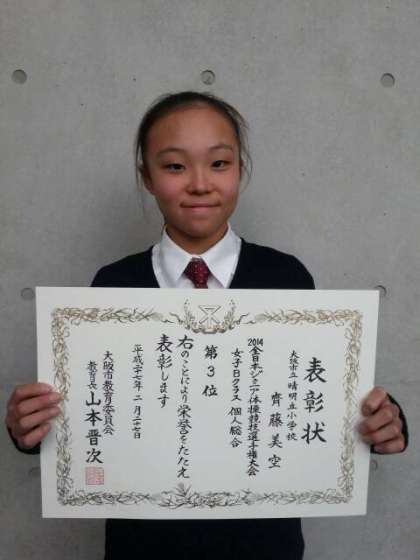 表彰状
大阪市立晴明丘小学校
齊藤美空
2014全日本ジュニア体操競技選手権大会
女子Bクラス 個人総合
第3位
右のことにより栄誉をたたえ
表彰します
平成二十七年二月二十七日
大阪市教育委員会
教育長 山本晋次